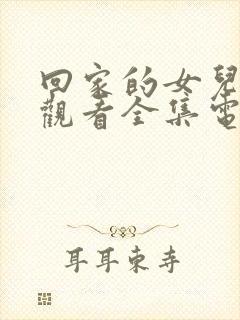 回家的女兒
觀看全集電
耳耳東寺